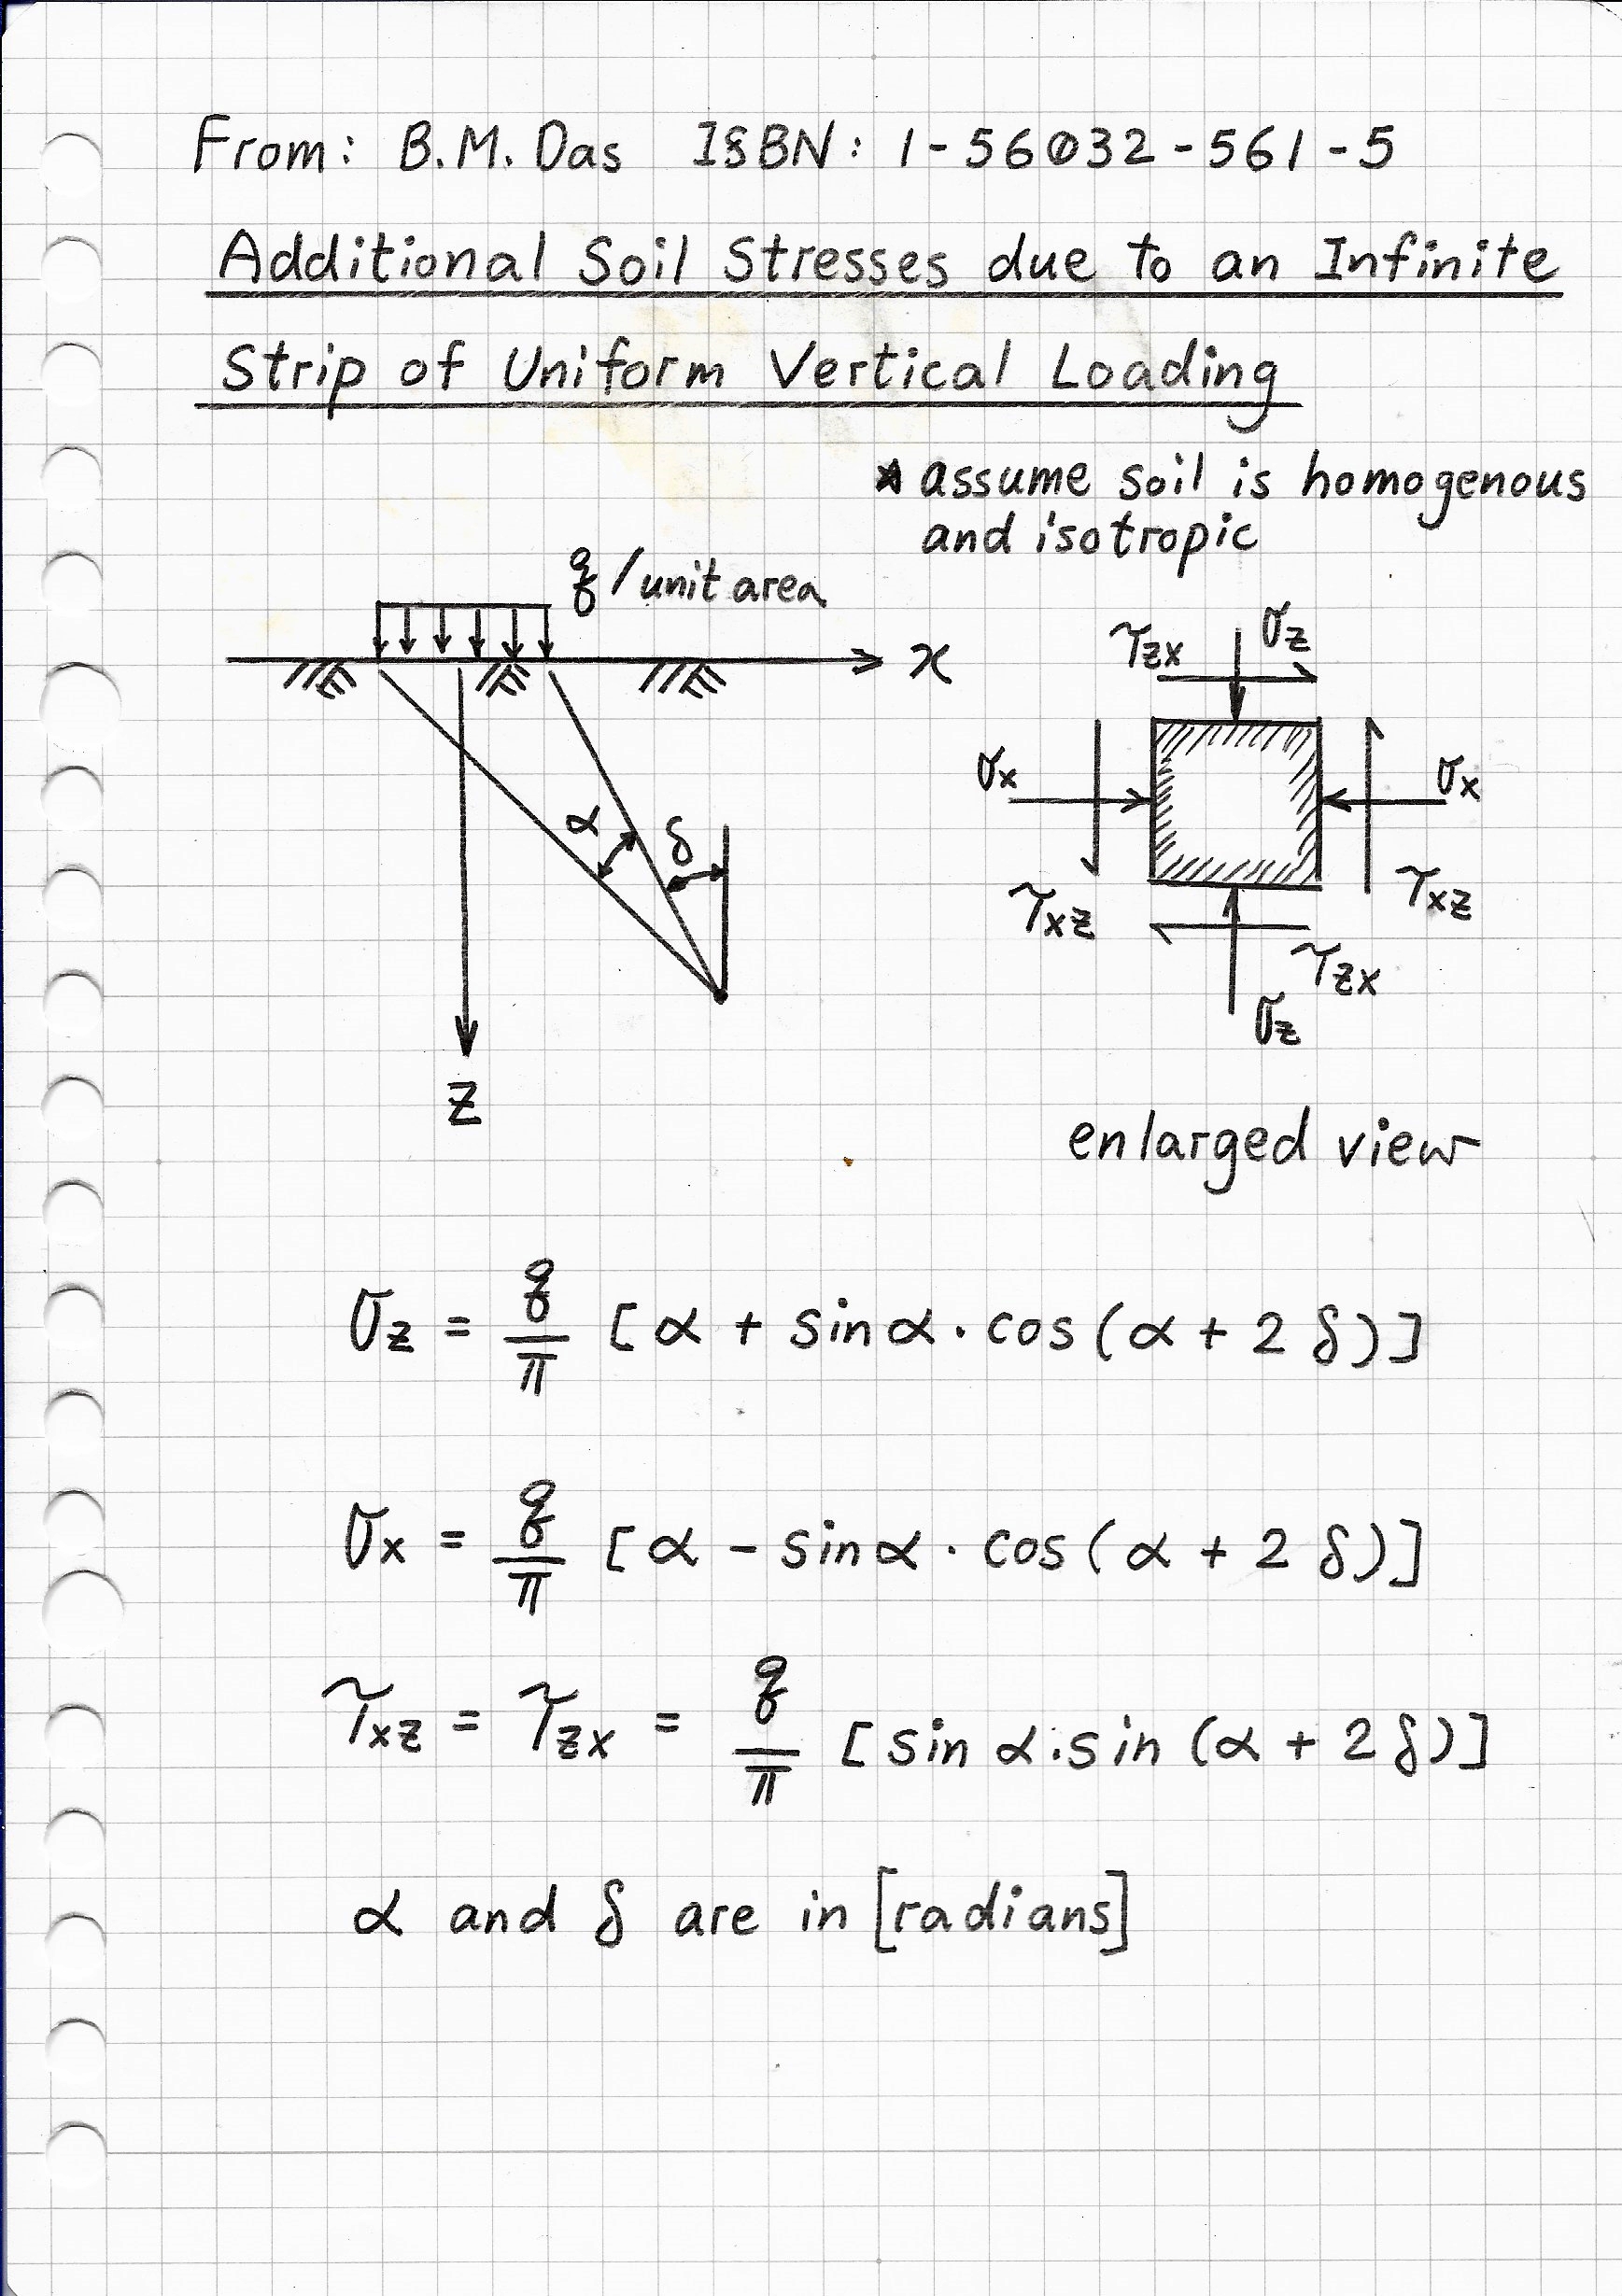 From: B.M. Das ISBN: 1-56032-561-5
Additional Soil Stresses due to an Infinite
Strip of Uniform Vertical Loading
* assume soil is homogenous
and isotropic
q/unit area
x
α
δ
z
τzx
σz
σx
σx
τxz
τxz
τzx
σz
enlarged view
σz = q/π [α + sin α · cos(α + 2δ)]
σx = q/π [α - sin α · cos(α + 2δ)]
τxz = τzx = q/π [sin α · sin (α + 2δ)]
α and δ are in [radians]